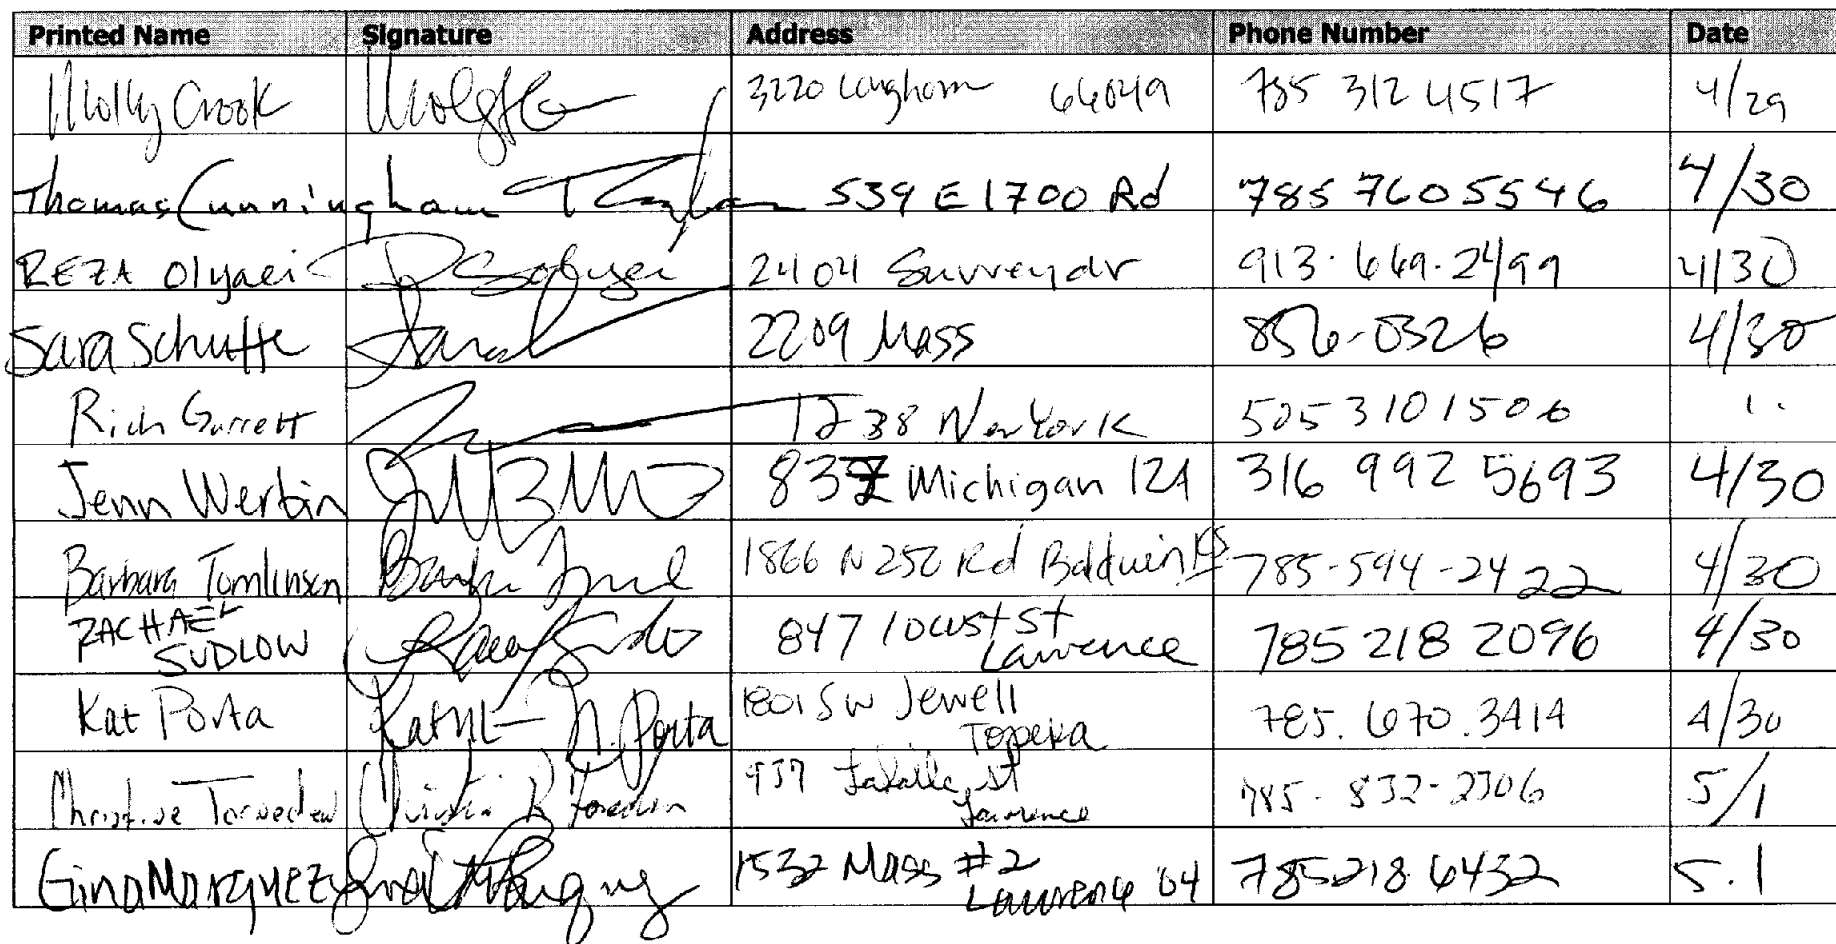 Printed Name Signature Address Phone Number Date
Molly Crook 3220 Longhorn 66049 785 312 4517 4/29
Thomas Cunningham 539 E 1700 Rd 785 760 5546 4/30
REZA Olyaei 2404 Surrey dr 913-669-2499 4/30
Sara Schutte Sarah 2209 Mass 856-0326 4/30
Rich Garrett 1238 New York 505 310 1506
Jenn Werbin 832 Michigan 121 316 992 5693 4/30
Barbara Tomlinson 1866 N 250 Rd Baldwin KS 785-594-2422 4/30
ZACHAEL
SUDLOW 847 locust st
Lawrence 785 218 2096 4/30
Kat Porta N. Porta 1801 SW Jewell
Topeka 785.670.3414 4/30
Christine Torneden 937 st
Lawrence 785-832-2306 5/1
Gina Marquez 1532 Mass #2
Lawrence 04 785 218 6432 5.1